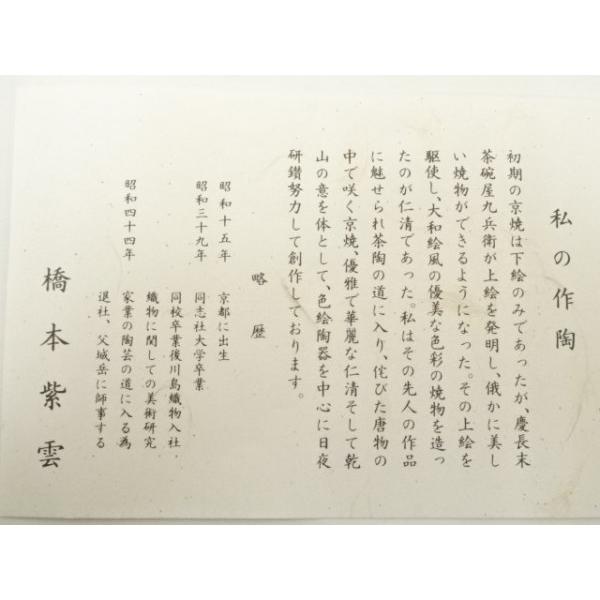 私の作陶
初期の京焼は下絵のみであったが、慶長末
茶碗屋九兵衛が上絵を発明し、俄かに美し
い焼物ができるようになった。その上絵を
駆使し、大和絵風の優美な色彩の焼物を造っ
たのが仁清であった。私はその先人の作品
に魅せられ茶陶の道に入り、侘びた唐物の
中で咲く京焼、優雅で華麗な仁清そして乾
山の意を体として、色絵陶器を中心に日夜
研鑽努力して創作しております。
略歴
昭和十五年 京都に出生
昭和三十九年 同志社大学卒業
同校卒業後川島織物入社、
織物に関しての美術研究
昭和四十四年 家業の陶芸の道に入る為
退社、父城岳に師事する
橋本紫雲